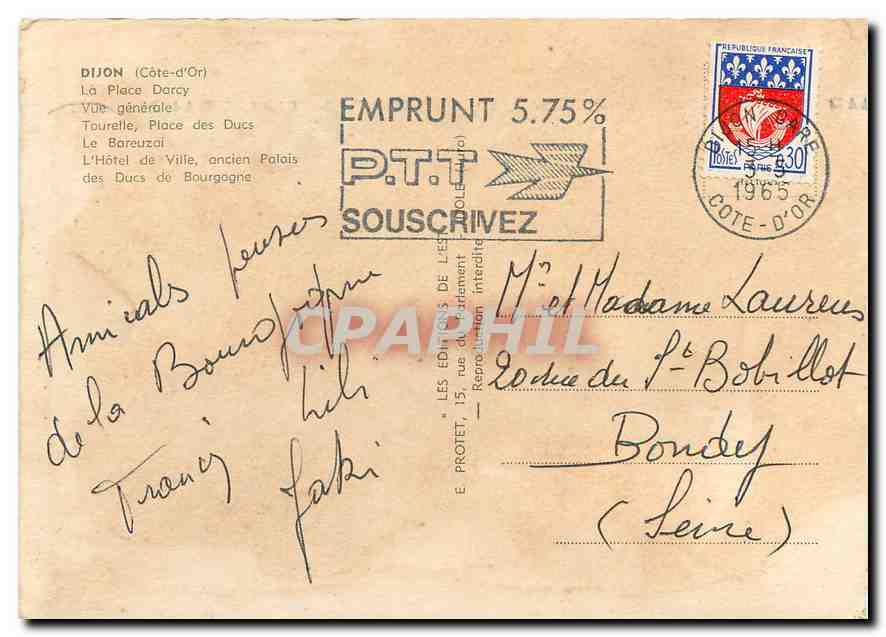 DIJON (Côte-d'Or)
La Place Darcy
Vue générale
Tourelle, Place des Ducs
Le Bareuzai
L'Hôtel de Ville, ancien Palais
des Ducs de Bourgogne
EMPRUNT 5.75%
P.T.T
SOUSCRIVEZ
REPUBLIQUE FRANÇAISE
POSTES
0,30
PARIS
DIJON GARE
15 H
5-9
1965
COTE-D'OR
Amicales pensées
de la Bourgogne
Francis Lili
Jaki
" LES EDITIONS DE L'EST
E. PROTET, 15, rue du Parlement - DOLE
— Reproduction interdite
Mr et Madame Laurens
20 rue du St Bobillot
Bondy
(Seine)
CPAPHIL